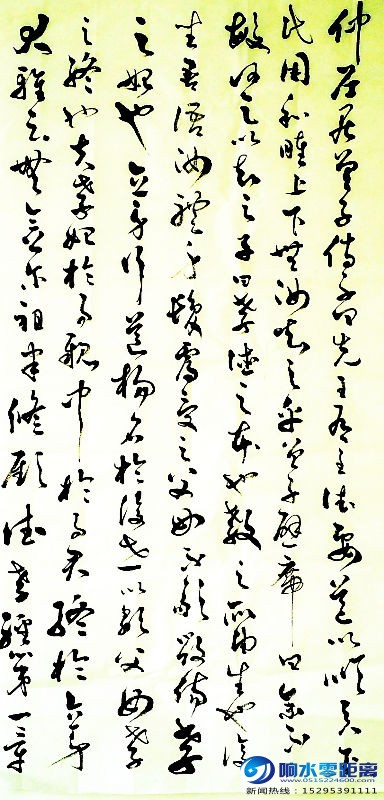 仲尼居曾子侍子曰先王有至德要道以順天下
民用和睦上下無汝知之乎曾子避席曰參不
敏何足以知之子曰孝德之本也教之所由生也復
坐吾語汝體身髮膚受之父母不敢毀傷孝
之始也立身行道揚名於後世以顯父母孝
之終也夫孝始於事親中於事君終於立身
大雅云無念尔祖聿修厥德孝經第一章
响水零距离
www.0515224600.com
新闻热线：15295391111